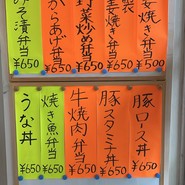 姜焼き弁当 ¥500
姜焼き弁当 ¥650
野菜炒め弁当 ¥650
からあげ弁当 ¥650
みそ漬弁当 ¥650
豚ロース丼 ¥650
豚スタミナ丼 ¥650
牛焼肉弁当 ¥650
焼き魚弁当 ¥650
うな丼 ¥650